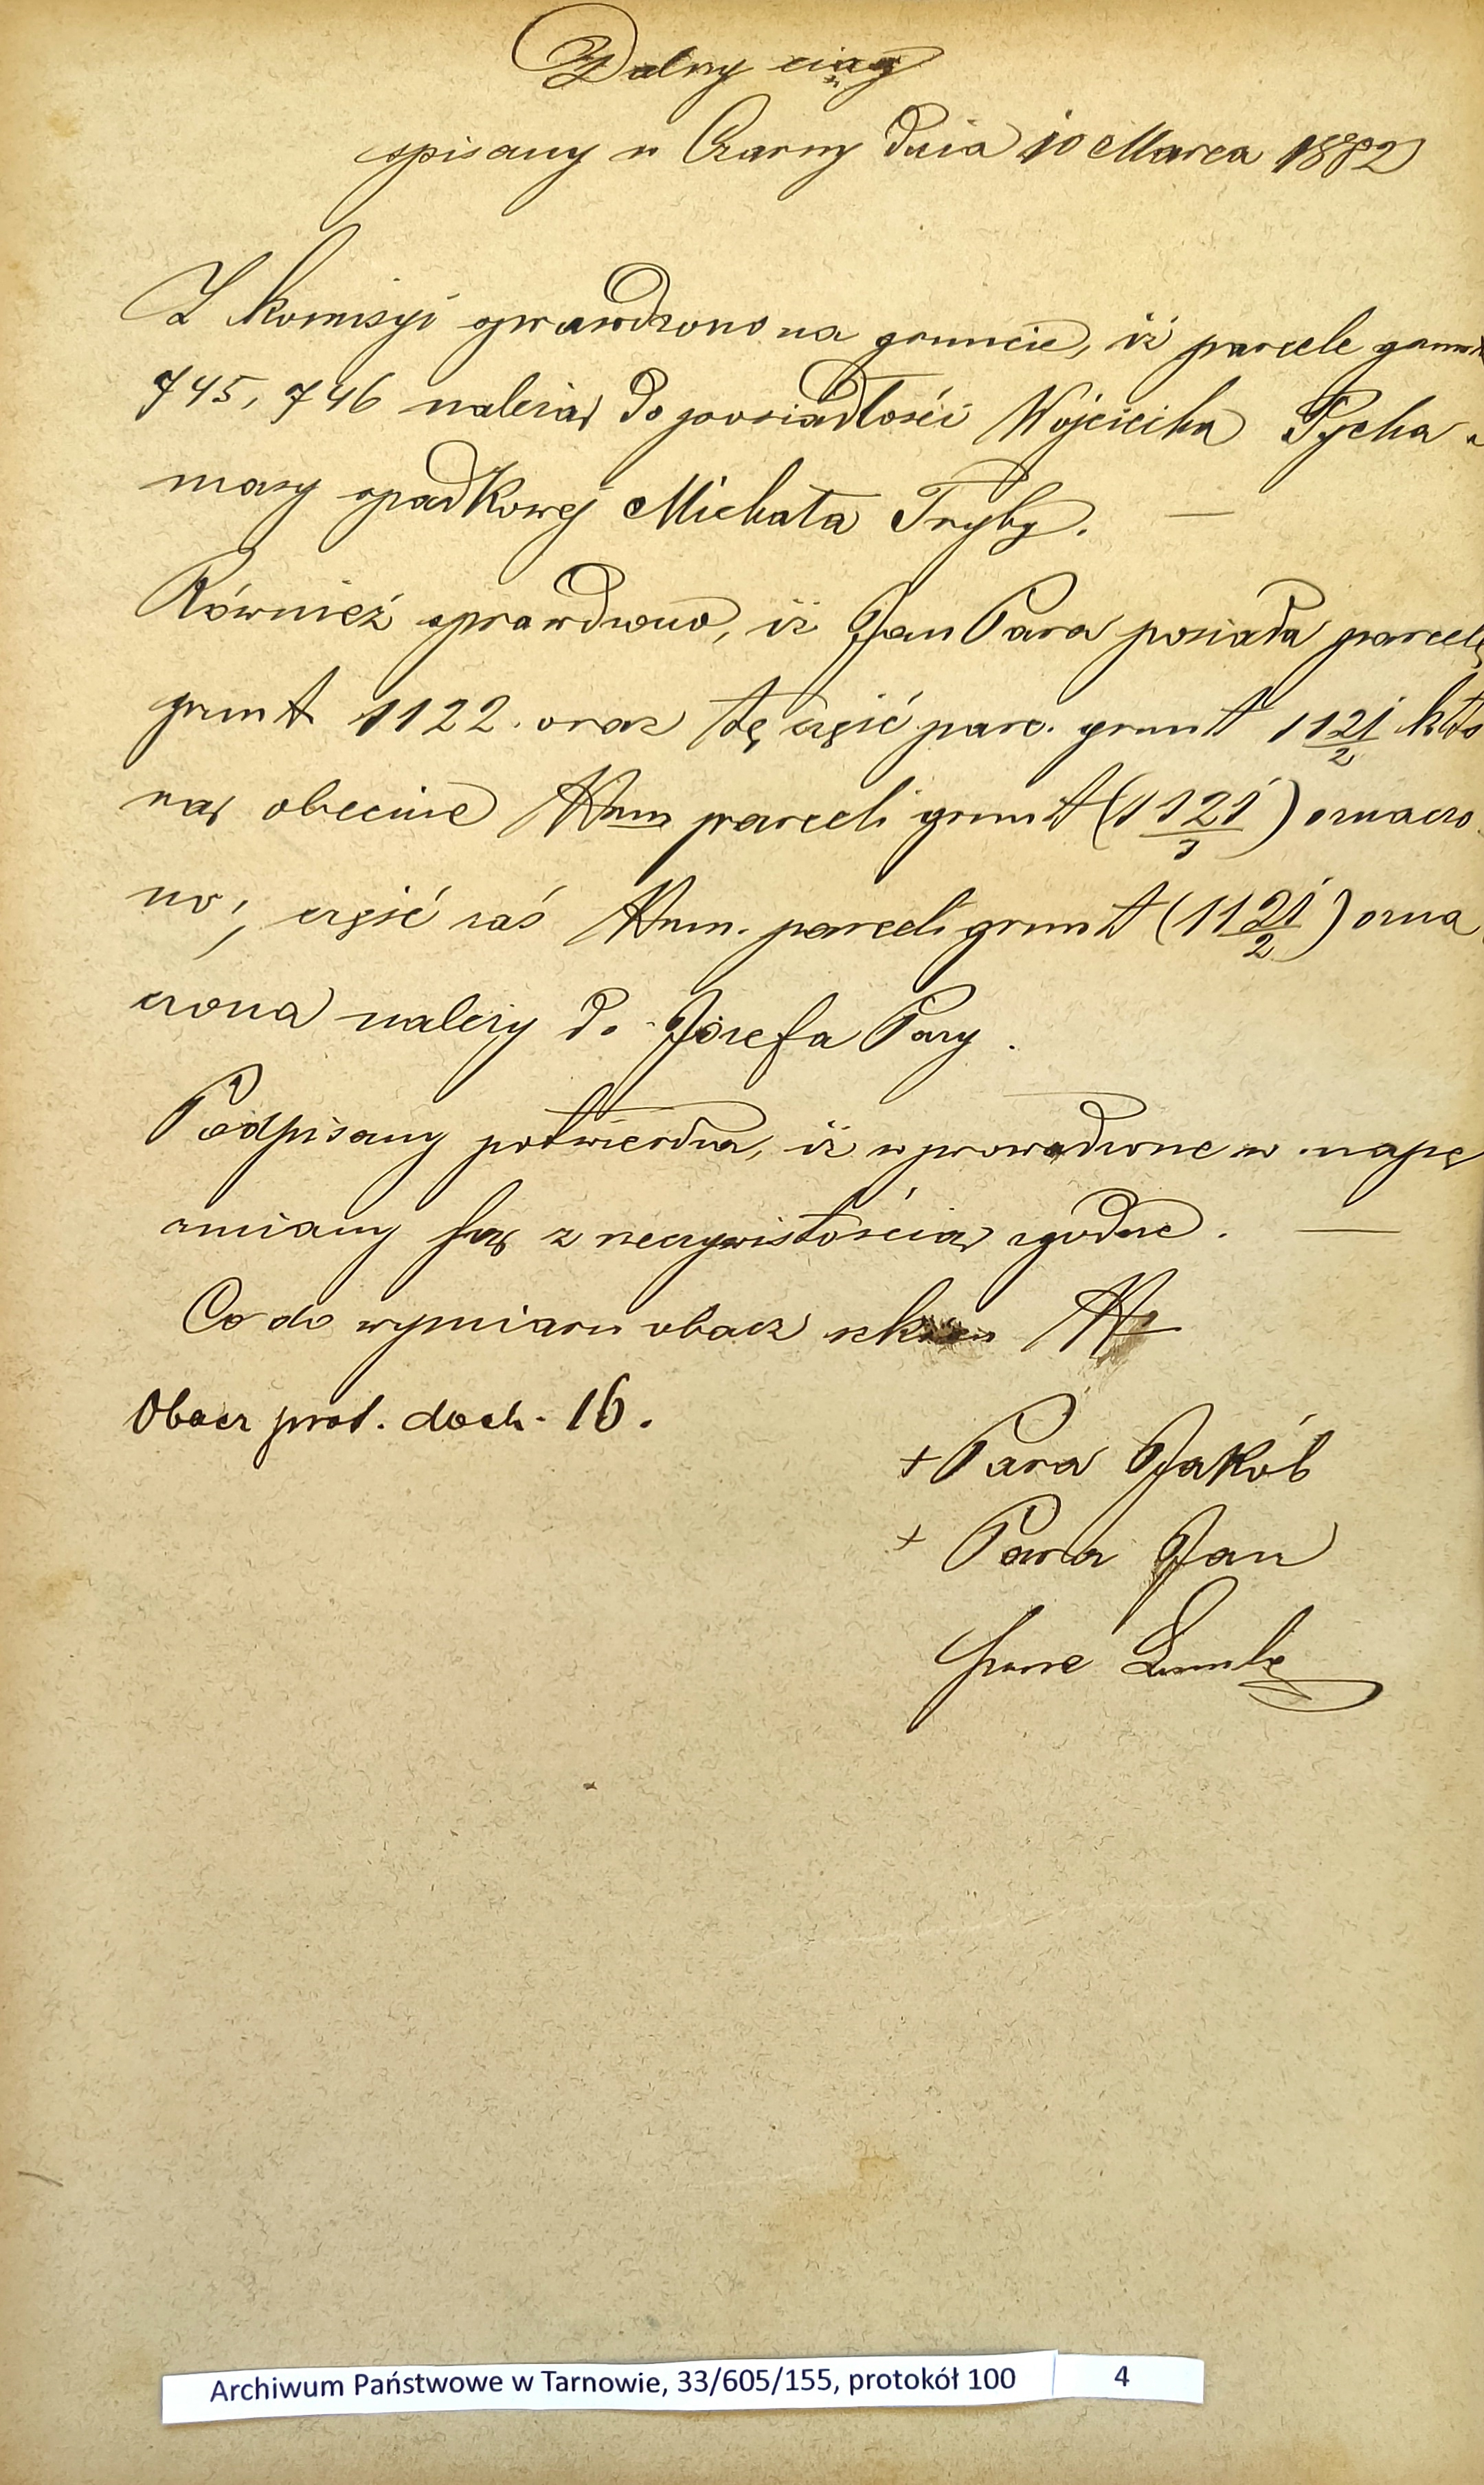 Dalszy ciąg
spisany w Czarny dnia 10 Marca 1882
Z komisyi sprawdzono na gruncie, iż parcele grunt
745, 746 należą do posiadłości Wojciecha Pycha
masy spadkowej Michała Tryby. —
Również sprawdzono, iż Jan Para posiada parcelę
grunt 1122. oraz tę część parc. grunt 1121/2 któ
rą obecnie Nrm parceli grunt (1121/3) oznaczo
no; część zaś Nrm. parceli grunt (1121/2) ozna
czona należy do Józefa Pary.
Podpisany potwierdza, iż wprowadzone w mapę
zmiany są z rzeczywistością zgodne. —
Co do wymiaru obacz szkic Nr
Obacz prot. doch. 16.
+ Para Jakób
+ Para Jan
Archiwum Państwowe w Tarnowie, 33/605/155, protokół 100 4